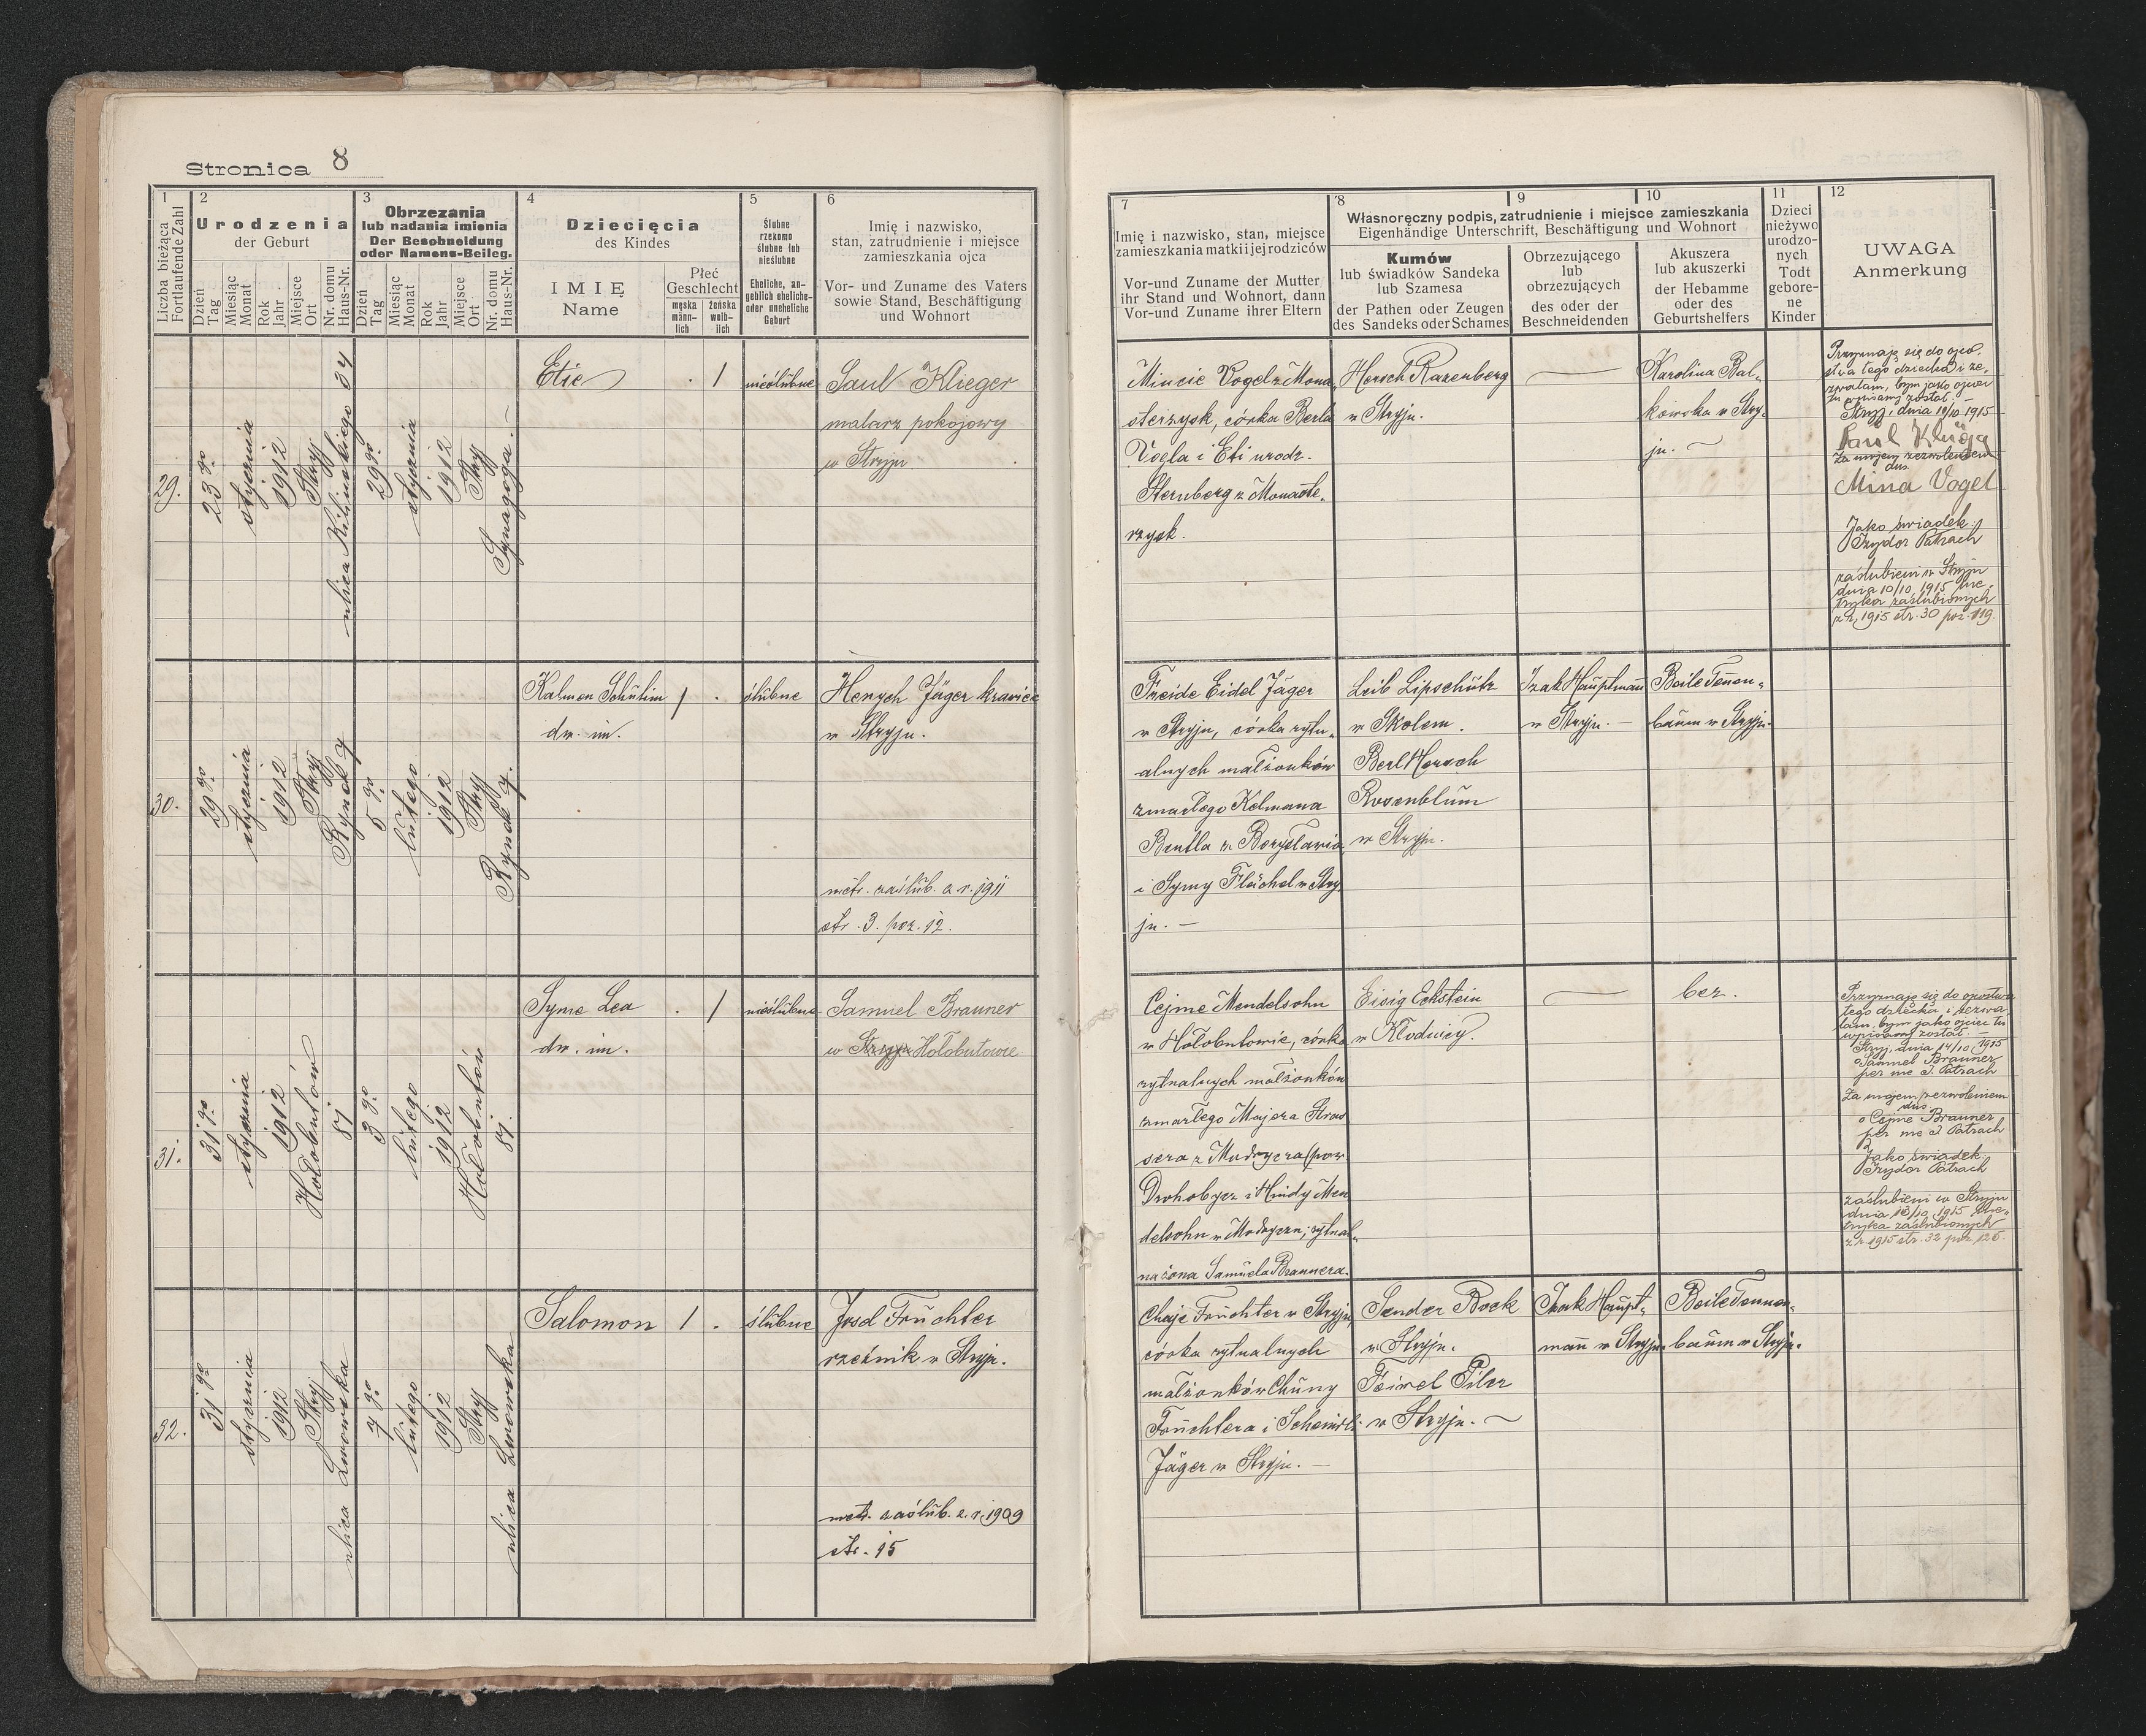 Stronica 8
1
Liczba bieżąca
Fortlaufende Zahl
2
Urodzenia
der Geburt
Dzień
Tag
Miesiąc
Monat
Rok
Jahr
Miejsce
Ort
Nr. domu
Haus-Nr.
3
Obrzezania
lub nadania imienia
Der Beschneidung
oder Namens-Beileg.
Dzień
Tag
Miesiąc
Monat
Rok
Jahr
Miejsce
Ort
Nr. domu
Haus-Nr.
4
Dziecięcia
des Kindes
IMIĘ
Name
Płeć
Geschlecht
męska
männ-
lich
żeńska
weib-
lich
5
Ślubne
rzekomo
ślubne lub
nieślubne
Eheliche, an-
geblich eheliche-
oder uneheliche
Geburt
6
Imię i nazwisko,
stan, zatrudnienie i miejsce
zamieszkania ojca
Vor- und Zuname des Vaters
sowie Stand, Beschäftigung
und Wohnort
7
Imię i nazwisko, stan, miejsce
zamieszkania matki i jej rodziców
Vor-und Zuname der Mutter
ihr Stand und Wohnort, dann
Vor-und Zuname ihrer Eltern
8
9
10
Własnoręczny podpis, zatrudnienie i miejsce zamieszkania
Eigenhändige Unterschrift, Beschäftigung und Wohnort
Kumów
lub świadków Sandeka
lub Szamesa
der Pathen oder Zeugen
des Sandeks oder Schames
Obrzezującego
lub
obrzezujących
des oder der
Beschneidenden
Akuszera
lub akuszerki
der Hebamme
oder des
Geburtshelfers
11
Dzieci
nieżywo
urodzo-
nych
Todt
gebore-
ne
Kinder
12
UWAGA
Anmerkung
29.
23 go
stycznia
1912
Stryj
ulica Kilinskiego 34
29 go
stycznia
1912
Stryj
Synagoga. –
Etie
. 1
nieślubne
Saul Klieger
malarz pokojowy
w Stryju
Mincie Vogel z Mona-
sterzysk, córka Berla
Vogla i Eti urodz.
Sternberg z Monaste-
rzysk.
Hersch Razenberg
w Stryju.
—
Karolina Bal-
kowska w Stry-
ju. –
Przyznaję się do ojco-
stwa tego dziecka i ze-
zwalam, bym jako ojciec
tu wpisany został.
Stryj, dnia 10/10 1915
Saul Klieger
Za mojem zezwoleniem
dus.
Mina Vogel
Jako świadek:
Izydor Patrach
zaślubieni w Stryju
dnia 10/10 1915 me-
tryka zaślubionych
z r. 1915 str. 30 poz. 119.
30.
29 go
stycznia
1912
Stryj
Rynek 9
5 go
lutego
1912
Stryj
Rynek 9.
Kalmen Schulim
dw. im.
1 .
ślubne
Henych Jäger krawiec
w Stryju.
metr. zaślub. z r. 1911
str. 3. poz. 12.
Freide Eidel Jäger
w Stryju, córka rytu-
alnych małżonków
zmarłego Kelmana
Bentla z Borysławia
i Symy Flächel w Stry-
ju. –
Leib Lipschütz
w Skolem.
Berl Hersch
Rosenblüm
w Stryju.
Izak Hauptmann
w Stryju. –
Beile Tenen-
baum w Stryju.
31.
31 go
stycznia
1912
Hołobutów
81
3 go
lutego
1912
Hołobutów
81.
Syme Lea
dw. im.
. 1
nieślubne
Samuel Brauner
w Stryju Hołobutowie
Cejme Mendelsohn
w Hołobutowie, córka
rytualnych małżonków
zmarłego Majera Stras
sera z Modrycza (pow.
Drohobycz i Hindy Men
delsohn w Modryczu, rytual-
na żona Samuela Braunera.
Eisig Eckstein
w Kłodnicy.
—
bez.
Przyznaję się do ojcostwa
tego dziecka i zezwa-
lam, bym jako ojciec tu
wpisany został. –
Stryj, dnia 14/10 1915
o Samuel Brauner
per me I. Patrach
Za mojem zezwoleniem
dus.
o Cejme Brauner
per me I. Patrach
Jako świadek:
Izydor Patrach
zaślubieni w Stryju
dnia 18/10 1915 me-
tryka zaślubionych
z r. 1915 str. 32 poz. 126.
32.
31 go
stycznia
1912
Stryj
ulica Lwowska
7 go
lutego
1912
Stryj
ulica Lwowska
Salomon
1 .
ślubne
Josel Früchter
rzeźnik w Stryju.
metr. zaślub. z. r. 1909
str. 15
Chaje Früchter w Stryju,
córka rytualnych
małżonków Chuny
Früchtera i Scheindli
Jäger w Stryju. –
Sender Bock
w Stryju.
Feiwel Piler
w Stryju. –
Izak Haupt-
mann w Stryju.
Beile Tennen-
baum w Stryju.